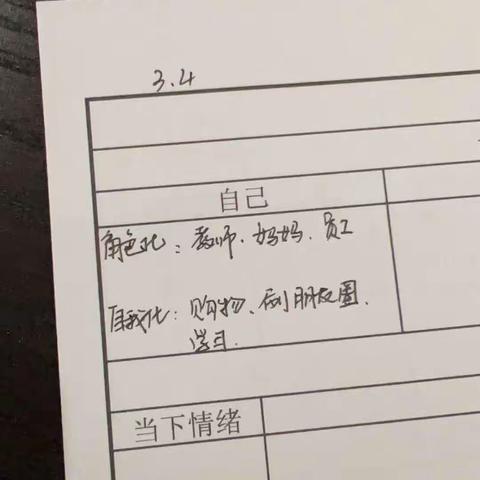 3.4
自己
角色化：教师、妈妈、员工
自我化：购物、刷朋友圈、
学习.
当下情绪